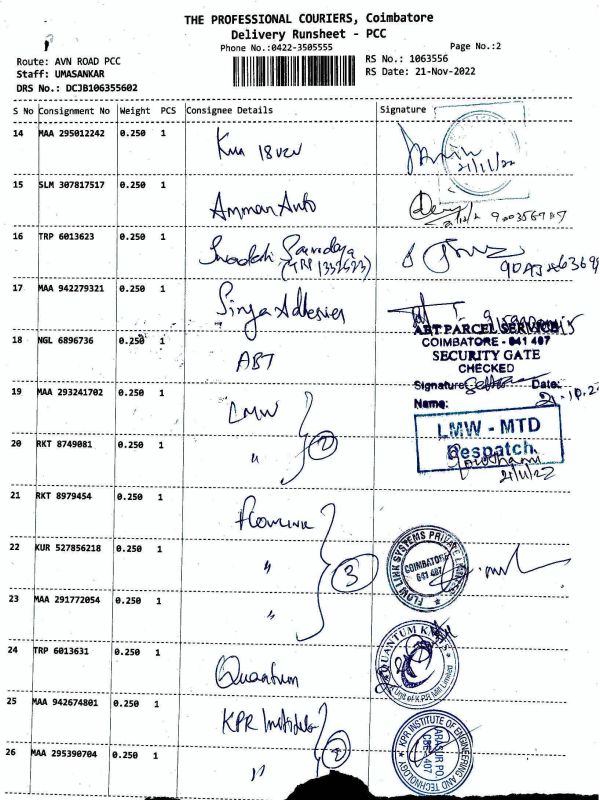 THE PROFESSIONAL COURIERS, Coimbatore
Delivery Runsheet - PCC
Phone No.:0422-3505555
Page No.:2
Route: AVN ROAD PCC
Staff: UMASANKAR
DRS No.: DCJB106355602
RS No.: 1063556
RS Date: 21-Nov-2022
S No Consignment No Weight PCS Consignee Details Signature
14 MAA 295012242 0.250 1
21/11/22
15 SLM 307817517 0.250 1 Amman Auto
16 TRP 6013623 0.250 1
17 MAA 942279321 0.250 1
18 NGL 6896736 0.250 1 ABT
ABT PARCEL SERVICE
COIMBATORE - 641 407
SECURITY GATE
CHECKED
Signature: Date:
Name:
19 MAA 293241702 0.250 1 LMW
LMW - MTD
Despatch
21/11/22
20 RKT 8749081 0.250 1 " 2
21 RKT 8979454 0.250 1 Flowlink
22 KUR 527856218 0.250 1 " 3
FLOW LINK SYSTEMS PRIVATE LIMITED
COIMBATORE
641 407
23 MAA 291772054 0.250 1 "
24 TRP 6013631 0.250 1 Quantum
QUANTUM KNITS
Unit of K.P.R. Mill Limited
25 MAA 942674801 0.250 1 KPR Institute
KPR INSTITUTE OF ENGINEERING AND TECHNOLOGY
ARASUR PO
CBE - 407
26 MAA 295390704 0.250 1 " 2